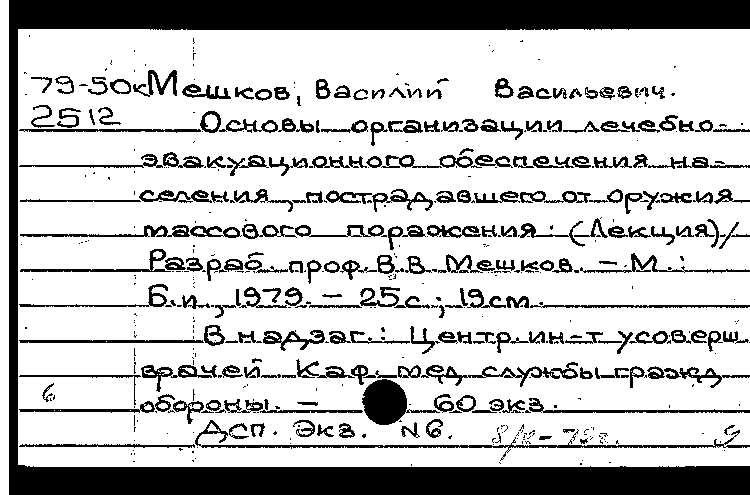 79-50к Мешков, Василий Васильевич.
2512 Основы организации лечебно-
эвакуационного обеспечения на-
селения, пострадавшего от оружия
массового поражения: (Лекция)/
Разраб. проф. В.В. Мешков. – М.:
Б.и., 1979. – 25с.; 19см.
В надзаг.: Центр. ин-т усоверш.
врачей Каф. мед. службы гражд.
6 обороны. – 60 экз.
Дсп. Экз. N6.